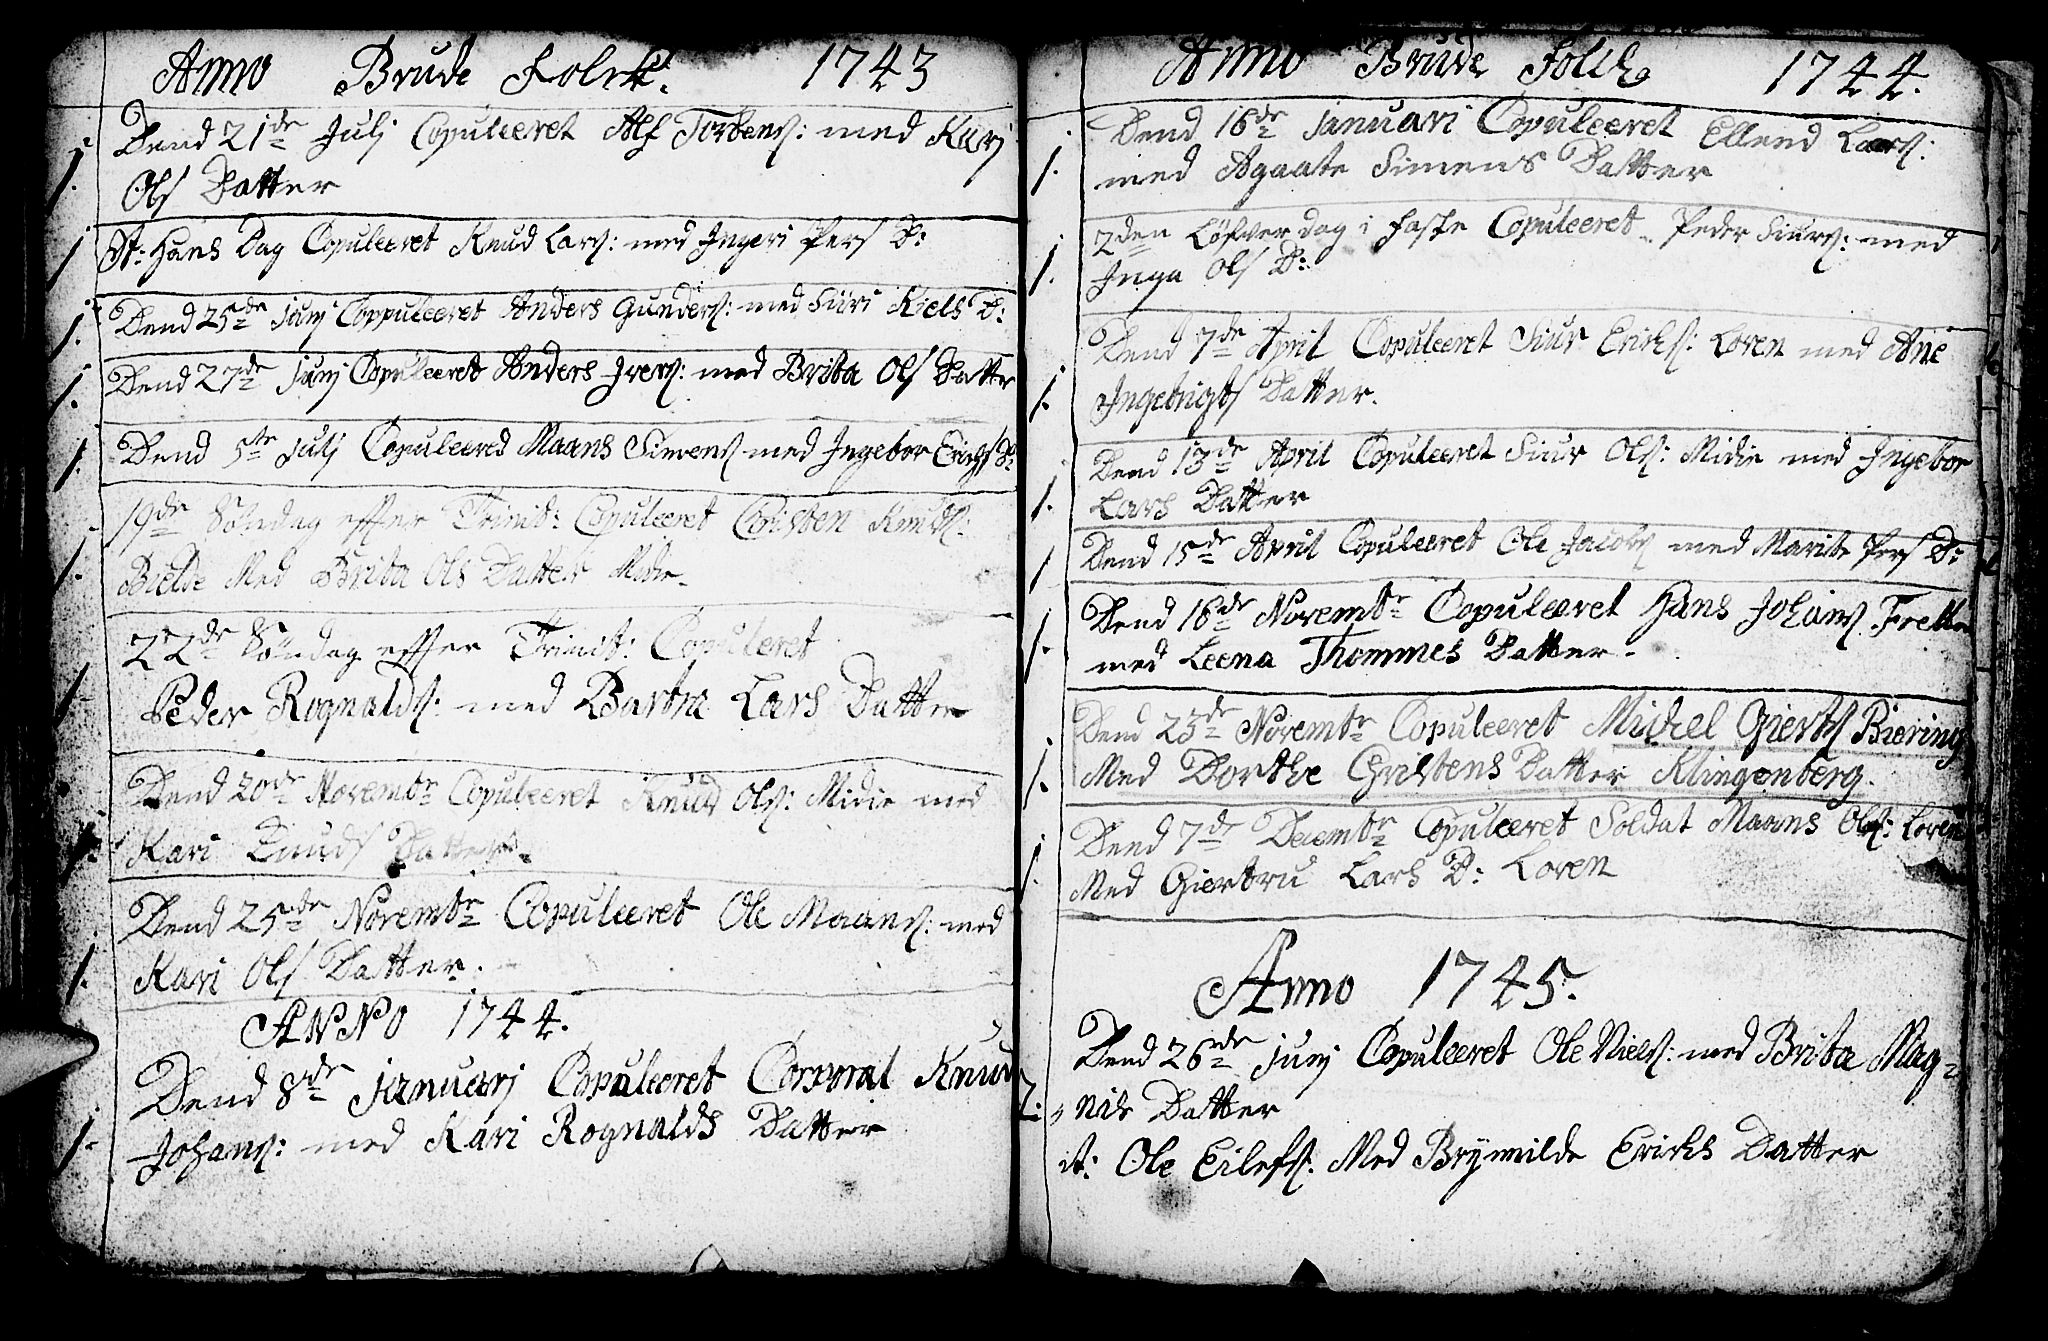 Anno Brude Folck: 1743
1. Dend 21de Julj Copuleeret Alf Torbens: med Karj
Ols Datter
1 St: Hans Dag Copuleeret Knud Lars: med Ingeri Pers D:
1. Dend 25de Junj Coppuleeret Anders Gunders: med Siiri Niels D:
1. Dend 27de Junj Copuleeret Anders Ivers: med Brita Ols Datter
1. Dend 5te Julj Copuleered Maans Simens med Ingebor Erichs D:
19de Søndag effter Trinit: Copuleeret Christen Knuds:
1. Bielde Med Brita Ols Datter Midie
22de Søndag effter Trinit: Copuleret
1 Peder Rognalds: med Bartra Lars Datter
Dend 20de Novembr Copuleeret Knud Ols: Midie med
1. Kari Knuds Datter.
Dend 25de Novembr Copuleeret Ole Maans: med
1. Kari Ols Datter.
ANNO 1744.
Dend 8de Januarj Copuleeret Corporal Knud
1. Johans: med Kari Rognalds Datter
Anno Brude Folck 1744.
Dend 16de Januari Copuleeret Ellend Lars:
1. med Agaate Simens Datter
2den Løfverdag i Faste Copuleeret Peder Siurs: med
1. Inga Ols D:
Dend 7de April Copuleeret Siur Erichs: Loren med Ane
1. Ingebrigts Datter.
Dend 13de April Copuleeret Siur Ols: Midie med Ingebor
1. Lars Datter
1 Dend 15de April Copuleeret Ole Jacobs med Marite Pers D:
Dend 16de Novembr Copuleeret Hans Johans Fretten
1. med Leena Thommes Datter.
Dend 23de Novembr Copuleeret Michel Gierts Biering
1. Med Dorthe Christens Datter Klingenberg.
Dend 7de Decembr Copuleeret Soldat Maans Ols: Loren
1. Med Giertru Lars D: Loren
Anno 1745.
Dend 26de Junj Copuleeret Ole Niels: med Brita Mag-
2: nils Datter
it: Ole Eilefs: Med Brynnilde Erichs Datter